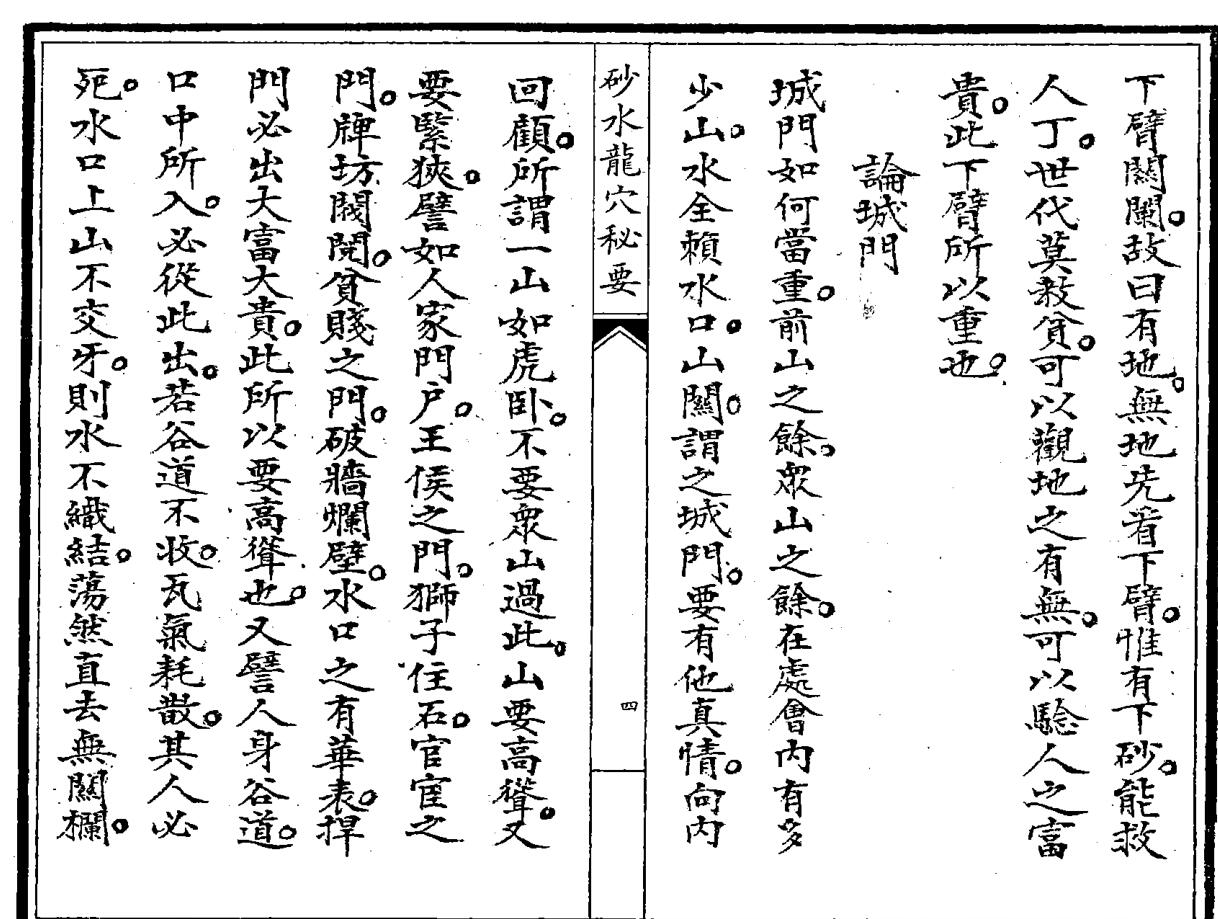 下臂關闌。故曰有地。無地先看下臂。惟有下砂。能救
人丁。世代莫教貧。可以觀地之有無。可以驗人之富
貴。此下臂所以重也。
論城門
城門如何當重。前山之餘。眾山之餘。在處會內有多
少山。水全賴水口。山關。謂之城門。要有他真情。向內
砂水龍穴秘要
四
回顧。所謂一山如虎卧。不要眾山過此。山要高聳。又
要緊狹。譬如人家門户。王侯之門。獅子住石。官宦之
門。牌坊閥閱。貧賤之門。破牆爛壁。水口之有華表。捍
門必出大富大貴。此所以要高聳也。又譬人身谷道。
口中所入。必從此出。若谷道不收。瓦氣耗散。其人必
死。水口上山不交牙。則水不織結。蕩然直去無關欄。